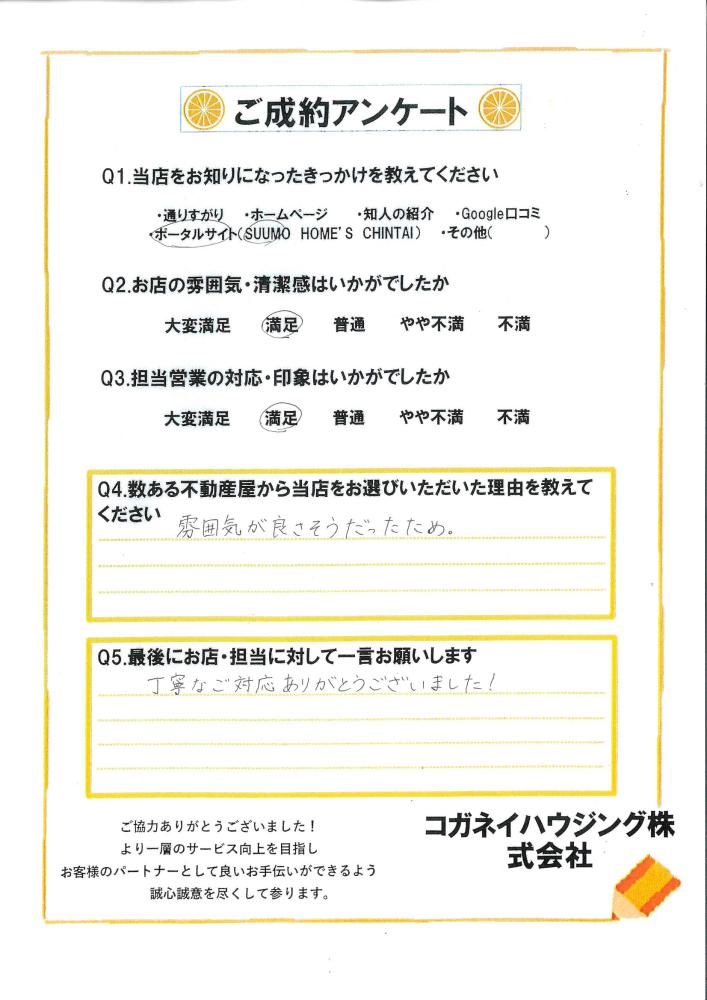 ご成約アンケート
Q1.当店をお知りになったきっかけを教えてください
・通りすがり ・ホームページ ・知人の紹介 ・Google口コミ
・ポータルサイト(SUUMO HOME'S CHINTAI) ・その他( )
Q2.お店の雰囲気・清潔感はいかがでしたか
大変満足 満足 普通 やや不満 不満
Q3.担当営業の対応・印象はいかがでしたか
大変満足 満足 普通 やや不満 不満
Q4.数ある不動産屋から当店をお選びいただいた理由を教えて
ください
雰囲気が良さそうだったため。
Q5.最後にお店・担当に対して一言お願いします
丁寧なご対応ありがとうございました!
ご協力ありがとうございました!
より一層のサービス向上を目指し
お客様のパートナーとして良いお手伝いができるよう
誠心誠意を尽くして参ります。
コガネイハウジング株
式会社